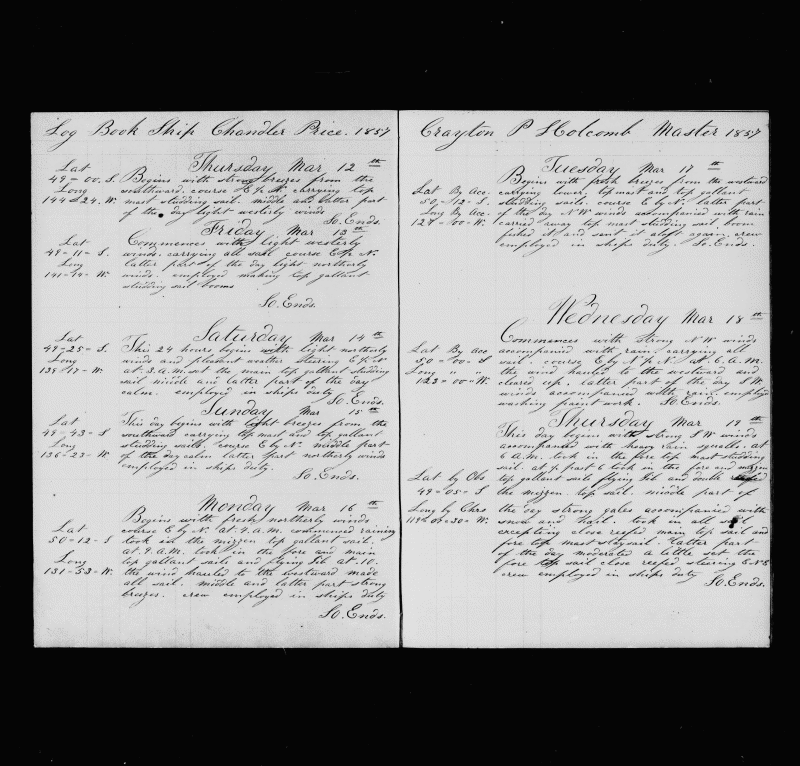 Log Book Ship Chandler Price. 1857
Thursday Mar 12th
Lat
49 = 00. S.
Long
144 = 24. W.
Begins with strong breezes from the
southward. course E. carrying top
mast studding sail. middle and latter part
of the day light westerly winds
So. Ends.
Friday Mar 13th
Lat
49 = 11 = S.
Long
141 = 14 = W.
Commences with light westerly
winds. carrying all sail course
latter part of the day light northerly
winds. employed making top gallant
studding sail booms
So. Ends.
Saturday Mar 14th
Lat
49 = 25 = S.
Long
139 = 17 = W.
This 24 hours begins with light northerly
winds and pleasant weather steering
at. 3. A.M. set the main top gallant studding
sail middle and latter part of the day
calm. employed in ships duty So. Ends.
Sunday Mar 15th
Lat
49 = 43 = S
Long
136 = 23 = W.
This day begins with light breezes from the
southward carrying top mast and top gallant
studding sails. course E by N. middle part
of the day calm latter part northerly winds
employed in ships duty.
So. Ends.
Monday Mar 16th
Lat
50 = 12 = S
Long
131 = 53 = W.
Begins with fresh northerly winds
course E by N. at 4. A.M. commenced raining
took in the mizzen top gallant sail.
at. 9. A.M. took in the fore and main
top gallant sails and flying Jib at. 10.
the wind hauled to the westward made
all sail. middle and latter part strong
breezes. crew employed in ships duty
So. Ends.
Crayton P Holcomb Master 1857
Tuesday Mar 17th
Lat By Acc.
50 = 12 = S.
Long By Acc.
127 = 00 = W.
Begins with fresh breezes from the westward
carrying lower, top mast and top gallant
studding sails. course E by N. latter part
of the day N W winds accompanied with rain
carried away top mast studding sail boom
fished it and sent it aloft again. crew
employed in ships duty. So. Ends.
Wednesday Mar 18th
Lat By Acc
50 = 00 = S
Long " "
123 = 00 = W.
Commences with strong N. W winds
accompanied with rain, carrying all
sail. course E by N. at 6. A. M.
the wind hauled to the westward and
cleared up. latter part of the day S W.
winds accompanied with rain. employed
washing paint work. So. Ends.
Thursday Mar 19th
Lat by Obs
49 = 05 = S
Long by Chrs
= 30 = W.
This day begins with strong S W winds
accompanied with heavy rain squalls. at
6 A.M. took in the fore top mast studding
sail. at part 6 took in the fore and mizzen
top gallant sails flying Jib and double reefed
the mizzen top sail. middle part of
the day strong gales accompanied with
snow and hail. took in all sail
excepting close reefed main top sail and
fore top mast staysail. latter part
of the day moderated a little set the
fore top sail close reefed steering E N E
crew employed in ships duty
So. Ends.